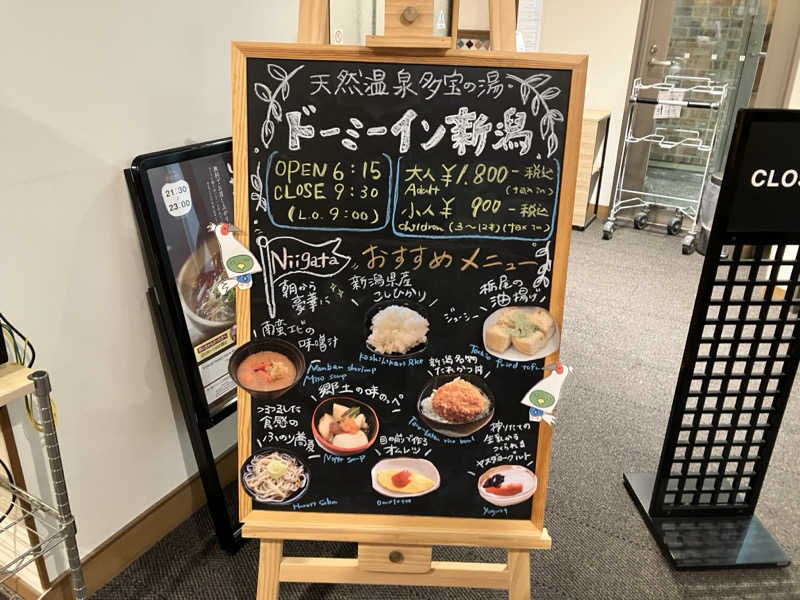 天然温泉多宝の湯
ドーミーイン新潟
OPEN 6:15
CLOSE 9:30
(L.O. 9:00)
大人 ¥1.800-税込
Adult (tax in)
小人 ¥ 900-税込
children (3~12才) (tax in)
Niigata おすすめメニュー
朝から
豪華に
新潟県産
こしひかり
Koshihikari Rice
栃尾の
油揚げ
ジューシー
Tochio fried tofu
南蛮エビの
味噌汁
Nanban shrimp
Miso soup
新潟名物
たれかつ丼
Tare-katsu rice bowl
郷土の味のっぺ
Noppe soup
つるつるした
食感の
ふのり蕎麦
Hunori Soba
目の前で作る
オムレツ
Omelette
搾りたての
生乳から
つくられる
ヤスダヨーグルト
Yogurt
21:30
23:00
CLOS